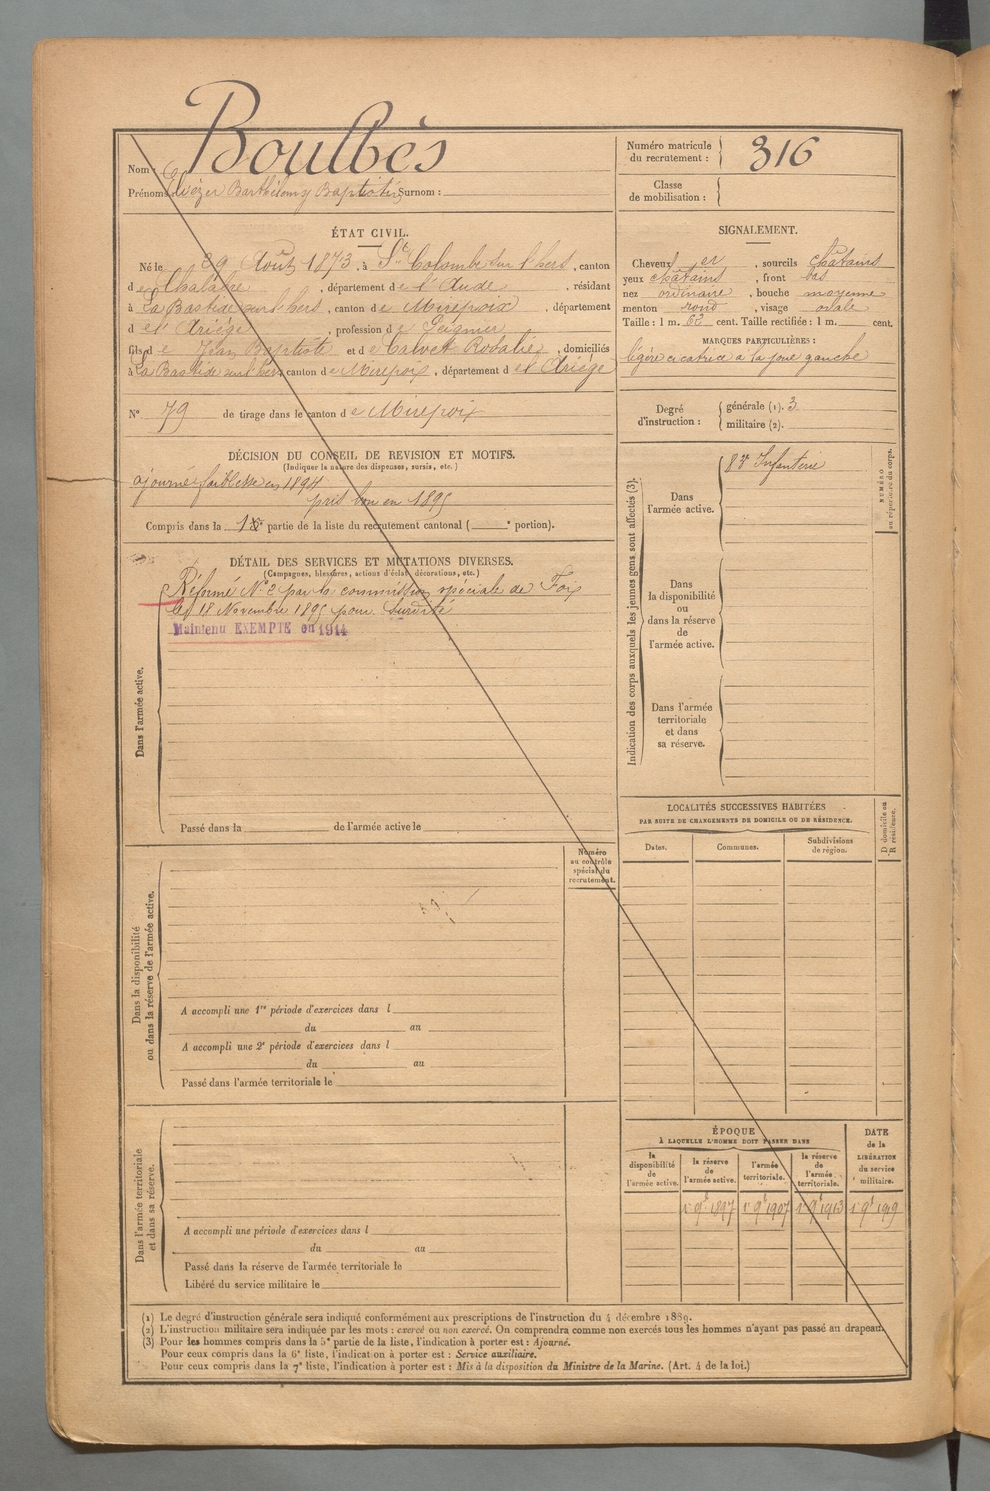 Nom : Boulbès
Prénoms Eliézer Barthélemy Baptiste Surnom :
Numéro matricule du recrutement : 316
Classe de mobilisation :
ÉTAT CIVIL.
Né le 29 Août 1873, à Ste Colombe sur l'hers, canton
de Chalabre, département de l'Aude, résidant
à La Bastide sur l'hers, canton de Mirepoix, département
de l'Ariège, profession de Peigneur
fils de Jean Baptiste et de Calvet Rosalie, domiciliés
à La Bastide sur l'hers canton de Mirepoix, département de l'Ariège
N° 79 de tirage dans le canton de Mirepoix
SIGNALEMENT.
Cheveux et, sourcils châtains
yeux châtains, front bas
nez ordinaire, bouche moyenne
menton rond, visage ovale
Taille : 1 m. 62 cent. Taille rectifiée : 1 m. cent.
MARQUES PARTICULIÈRES :
légère cicatrice à la joue gauche
Degré d'instruction : générale (1). 3
militaire (2).
DÉCISION DU CONSEIL DE REVISION ET MOTIFS.
(Indiquer la nature des dispenses, sursis, etc.)
ajourné faiblesse en 1894
pris bon en 1895
Compris dans la 1re partie de la liste du recrutement cantonal ( e portion).
DÉTAIL DES SERVICES ET MUTATIONS DIVERSES.
(Campagnes, blessures, actions d'éclat, décorations, etc.)
Réformé N° 2 par la commission spéciale de Foix
le 18 Novembre 1895 pour surdité
Maintenu EXEMPTE en 1914
Dans l'armée active.
Passé dans la de l'armée active le
Indication des corps auxquels les jeunes gens sont affectés (3).
Dans l'armée active.
83e Infanterie
NUMÉRO au répertoire du corps.
Dans la disponibilité ou dans la réserve de l'armée active.
Dans l'armée territoriale et dans sa réserve.
LOCALITÉS SUCCESSIVES HABITÉES
PAR SUITE DE CHANGEMENTS DE DOMICILE OU DE RÉSIDENCE.
Dates.
Communes.
Subdivisions de région.
D domicile ou R résidence.
Numéro au contrôle spécial du recrutement.
Dans la disponibilité ou dans la réserve de l'armée active.
A accompli une 1re période d'exercices dans l
du au
A accompli une 2e période d'exercices dans l
du au
Passé dans l'armée territoriale le
Dans l'armée territoriale et dans sa réserve.
A accompli une période d'exercices dans l
du au
Passé dans la réserve de l'armée territoriale le
Libéré du service militaire le
ÉPOQUE
À LAQUELLE L'HOMME DOIT PASSER DANS
la disponibilité de l'armée active.
la réserve de l'armée active.
l'armée territoriale.
la réserve de l'armée territoriale.
DATE de la LIBÉRATION du service militaire.
1 9bre 1897
1 9bre 1907
1 9bre 1913
1 9bre 1919
(1) Le degré d'instruction générale sera indiqué conformément aux prescriptions de l'instruction du 4 décembre 1889.
(2) L'instruction militaire sera indiquée par les mots : exercé ou non exercé. On comprendra comme non exercés tous les hommes n'ayant pas passé au drapeau.
(3) Pour les hommes compris dans la 5e partie de la liste, l'indication à porter est : Ajourné.
Pour ceux compris dans la 6e liste, l'indication à porter est : Service auxiliaire.
Pour ceux compris dans la 7e liste, l'indication à porter est : Mis à la disposition du Ministre de la Marine. (Art. 4 de la loi.)